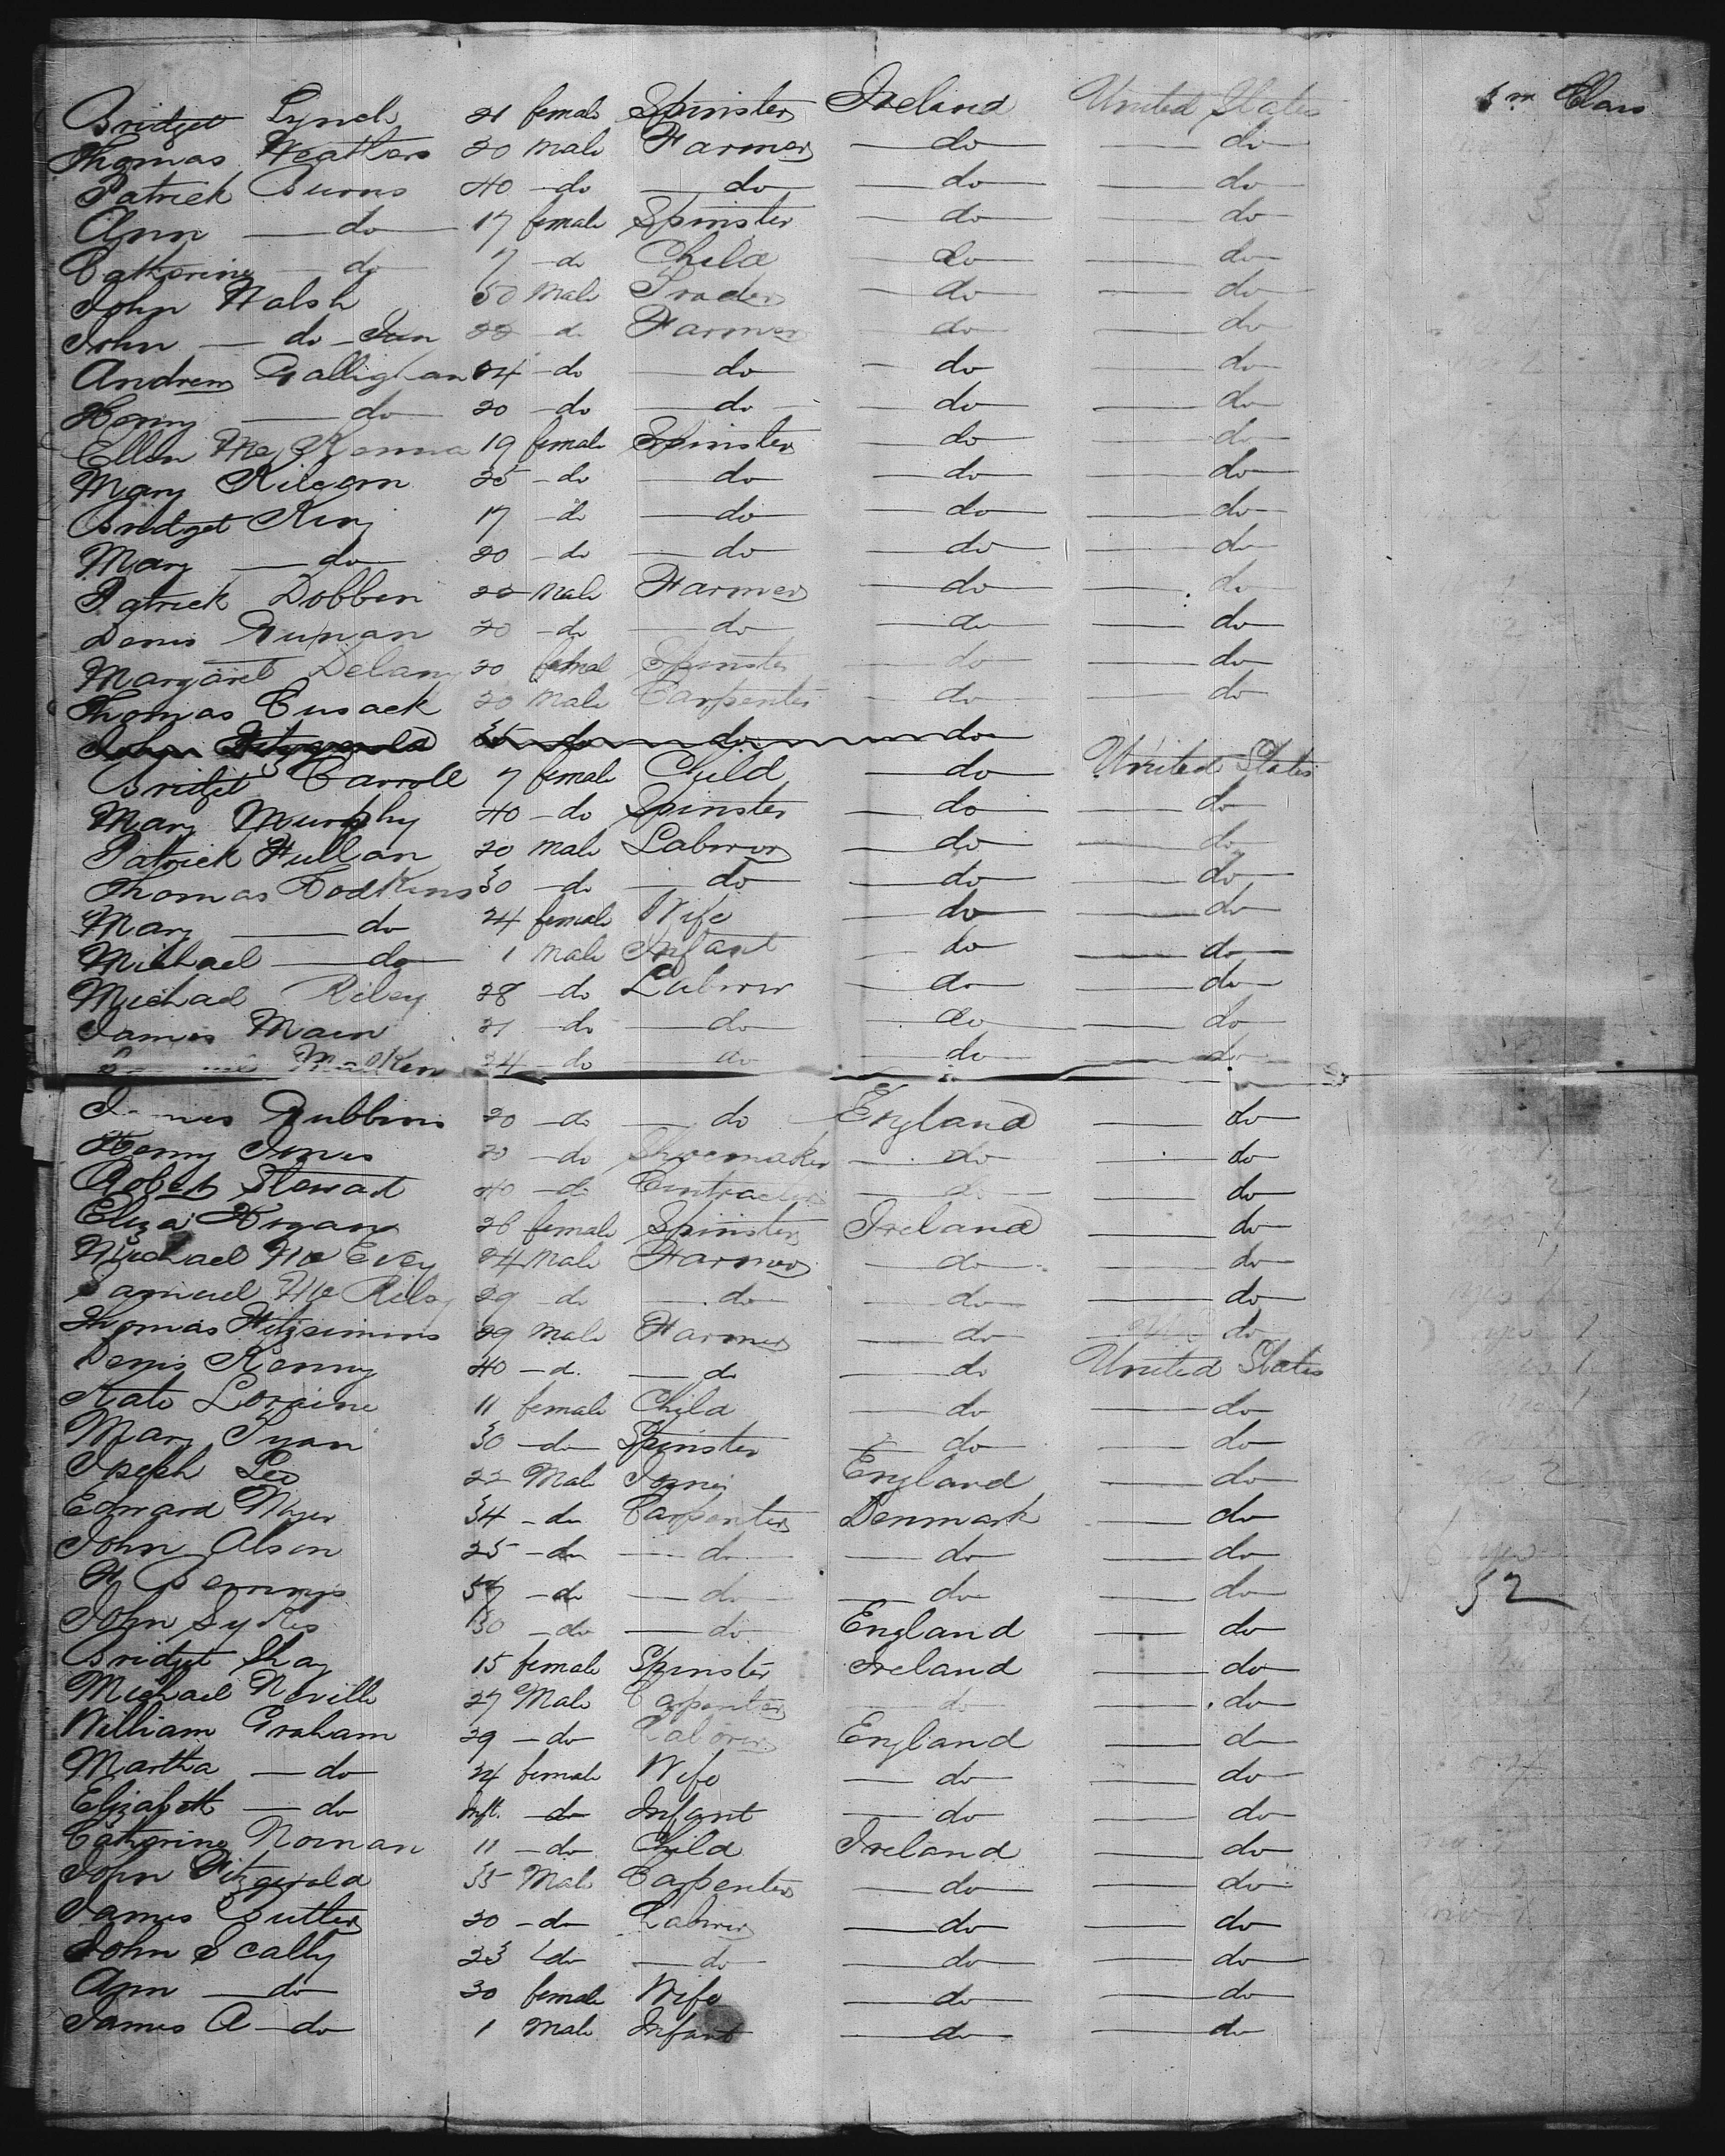 Bridget Lynch 21 female Spinster Ireland United States Class
Thomas Weathers 20 male Farmer do do
Patrick Burns 40 do do do do
Ann do 17 female Spinster do do
Catherine do 7 do Child do do
John Walsh 50 male Trader do do
John do Jun 22 do Farmer do do
Andrew Gallighan 24 do do do do
Henry do 20 do do do do
Ellen McKenna 19 female Spinster do do
Mary Kilcorn 25 do do do do
Bridget King 17 do do do do
Mary do 20 do do do do
Patrick Dobbin 22 male Farmer do do
Denis 20 do do do do
Margaret Delany 20 femal Spinster do do
Thomas Cusack 20 male Carpenter do do
John Fitzgerald 35 do do do
Bridget Carroll 7 femal Child do United States
Mary Murphy 40 do Spinster do do
Patrick Fullan 20 male Labror do do
Thomas Hodkins 30 do do do do
Mary do 24 female Wife do do
Michael do 1 male Infant do do
Michael Riley 28 do Labror do do
James Main 21 do do do do
24 do do do do
James Gubbins 20 do do England do
Henry Jones 20 do Shoemaker do do
Robert Stewart 40 do Contractor do do
Eliza Hogan 26 female Spinster Ireland do
Michael McEvey 24 male Farmer do do
Samuel McRiley 29 do do do do
Thomas Fitzsimins 29 male Farmer do do
Denis Kenny 40 do do do United States
Kate Loraine 11 female Child do do
Mary Tyan 30 do Spinster do do
Joseph Lee 22 Male England do
Edward 34 do Carpenter Denmark do
John Olson 25 do do do do
do do do do 52
John Sykes 30 do do England do
Bridget Shay 15 female Spinster Ireland do
Michael Neville 27 Male Carpenter do do
William Graham 29 do Laborer England do
Martha do 24 female Wife do do
Elizabeth do Inft. do Infant do do
Catherine Noonan 11 do Child Ireland do
John Fitzgerald 35 Male Carpenter do do
James Butler 20 do Labrer do do
John Scally 23 do do do do
Ann do 30 female Wife do do
James A do 1 Male Infant do do